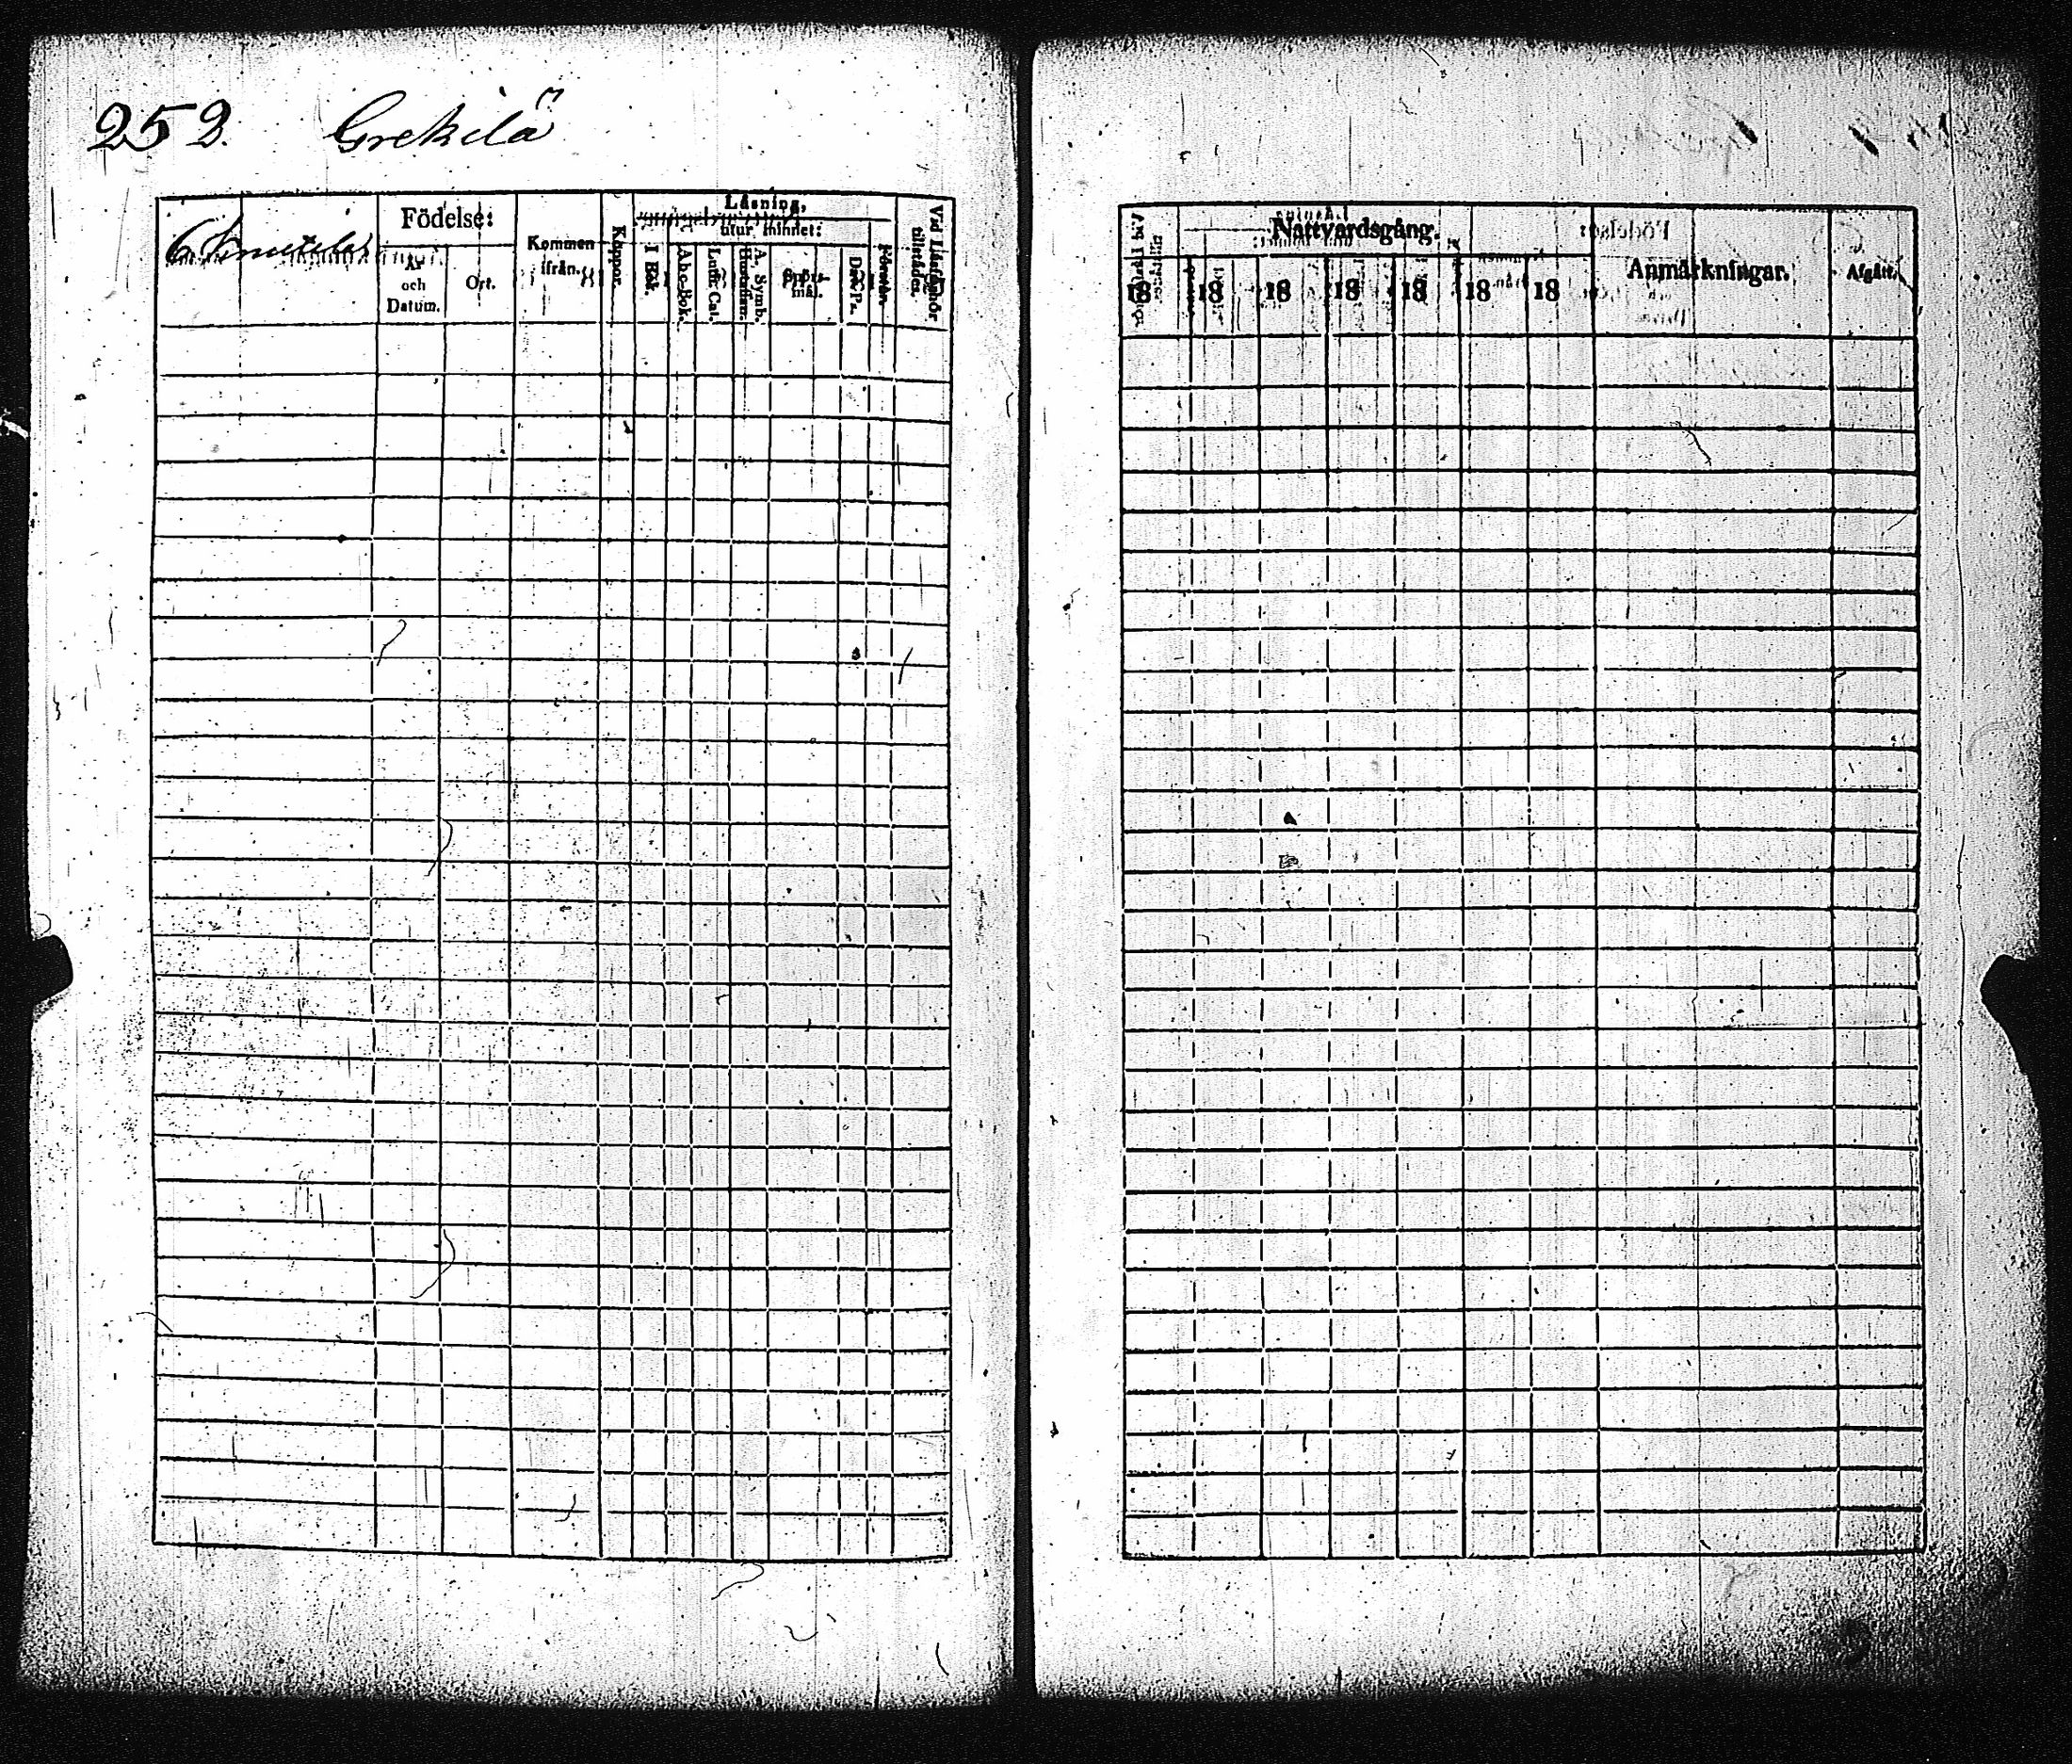 252. Grekilä
6
Födelse:
År och Datum.
Ort.
Kommen ifrån.
Koppor.
Läsning,
utur minnet:
I Bok.
Abc-Bok.
Luth. Cat.
Hustaflan.
A. Symb.
Spörsmål.
Dav. Ps.
Förstår.
Vid Läsförhör tillstädes.
Nattvardsgång.
18 18 18 18 18 18 18
Anmärkningar.
Afgått.